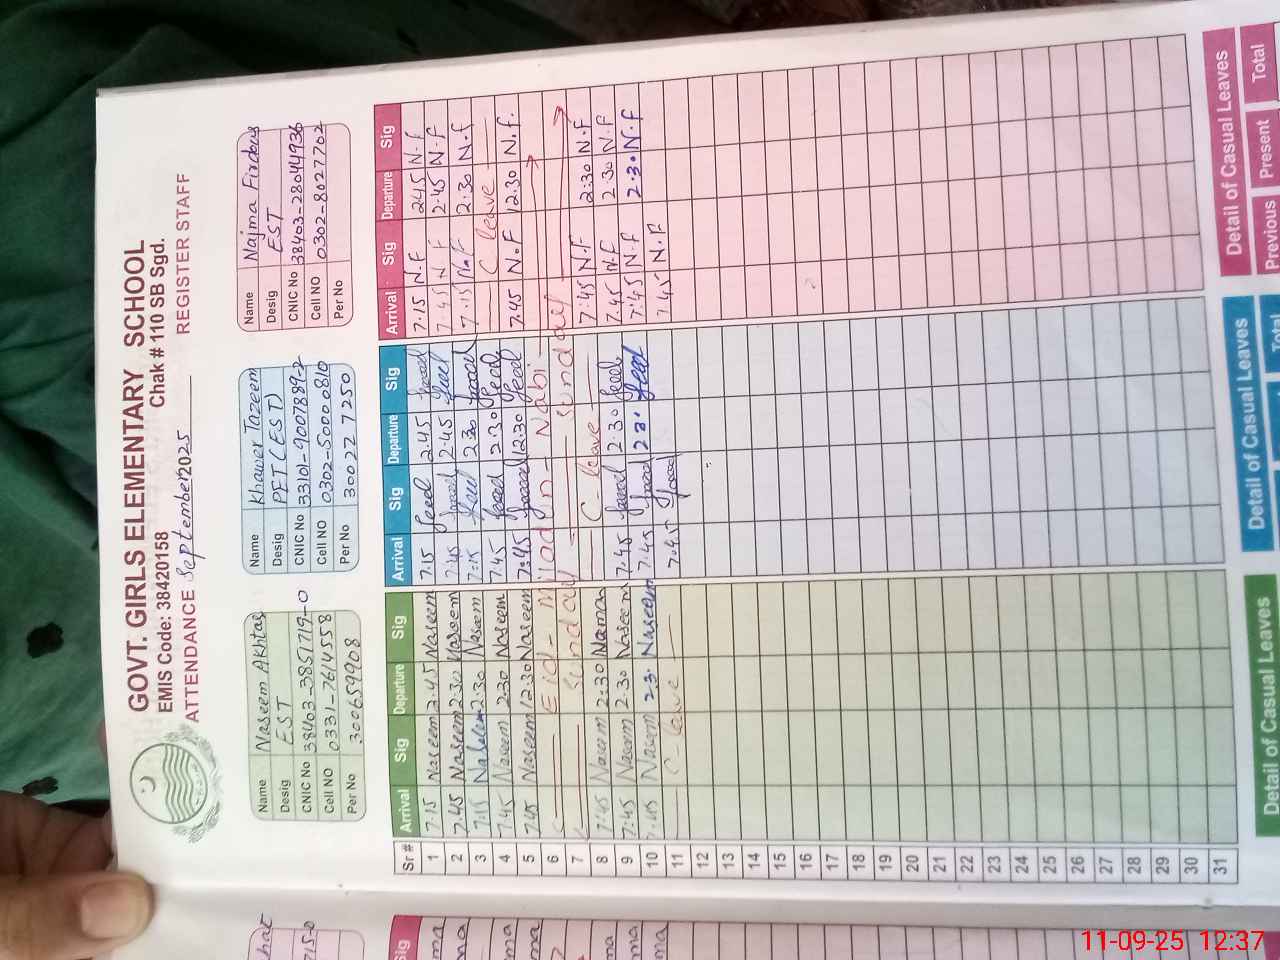 GOVT. GIRLS ELEMENTARY SCHOOL
EMIS Code: 38420158 Chak # 110 SB Sgd.
ATTENDANCE September 2025 REGISTER STAFF
Name Naseem Akhtar
Desig EST
CNIC No 38403-3851719-0
Cell NO 0331-7614558
Per No 300659908
Name Khawer Tazeem
Desig PET (EST)
CNIC No 33101-9007889-2
Cell NO 0302-5000810
Per No 30022 7250
Name Najma Firdous
Desig EST
CNIC No 38403-28044936
Cell NO 0302-8027702
Per No
Sr # Arrival Sig Departure Sig Arrival Sig Departure Sig Arrival Sig Departure Sig
1 7.15 Naseem 2.45 Naseem 7.15 2.45 7.15 N.F 245 N.F
2 7.45 Naseem 2.30 Naseem 7.45 2.45 7.45 N.F 2.45 N.F
3 7:15 Naseem 2:30 Naseem 7:15 2.30 7.15 N.F 2.30 N.F
4 7.45 Naseem 2.30 Naseem 7.45 2.30 C leave
5 7.45 Naseem 12.30 Naseem 7:45 12.30 7.45 N.F 12.30 N.F.
6 Eid-Milad-un-Nabi
7 Sunday Sunday
8 7:45 Naseem 2:30 Naman C-leave 7:45 N.F 2:30 N.F
9 7:45 Naseem 2.30 Naseem 7.45 2.30 7.45 N.F 2.30 N.F
10 7.45 Naseem 2.3. Naseem 7.45 23. 7:45 N.F 2.30 N.F
11 C-leave 7.45 7.45 N.F
12
13
14
15
16
17
18
19
20
21
22
23
24
25
26
27
28
29
30
31
Detail of Casual Leaves Detail of Casual Leaves Detail of Casual Leaves
Total Previous Present Total
11-09-25 12:37